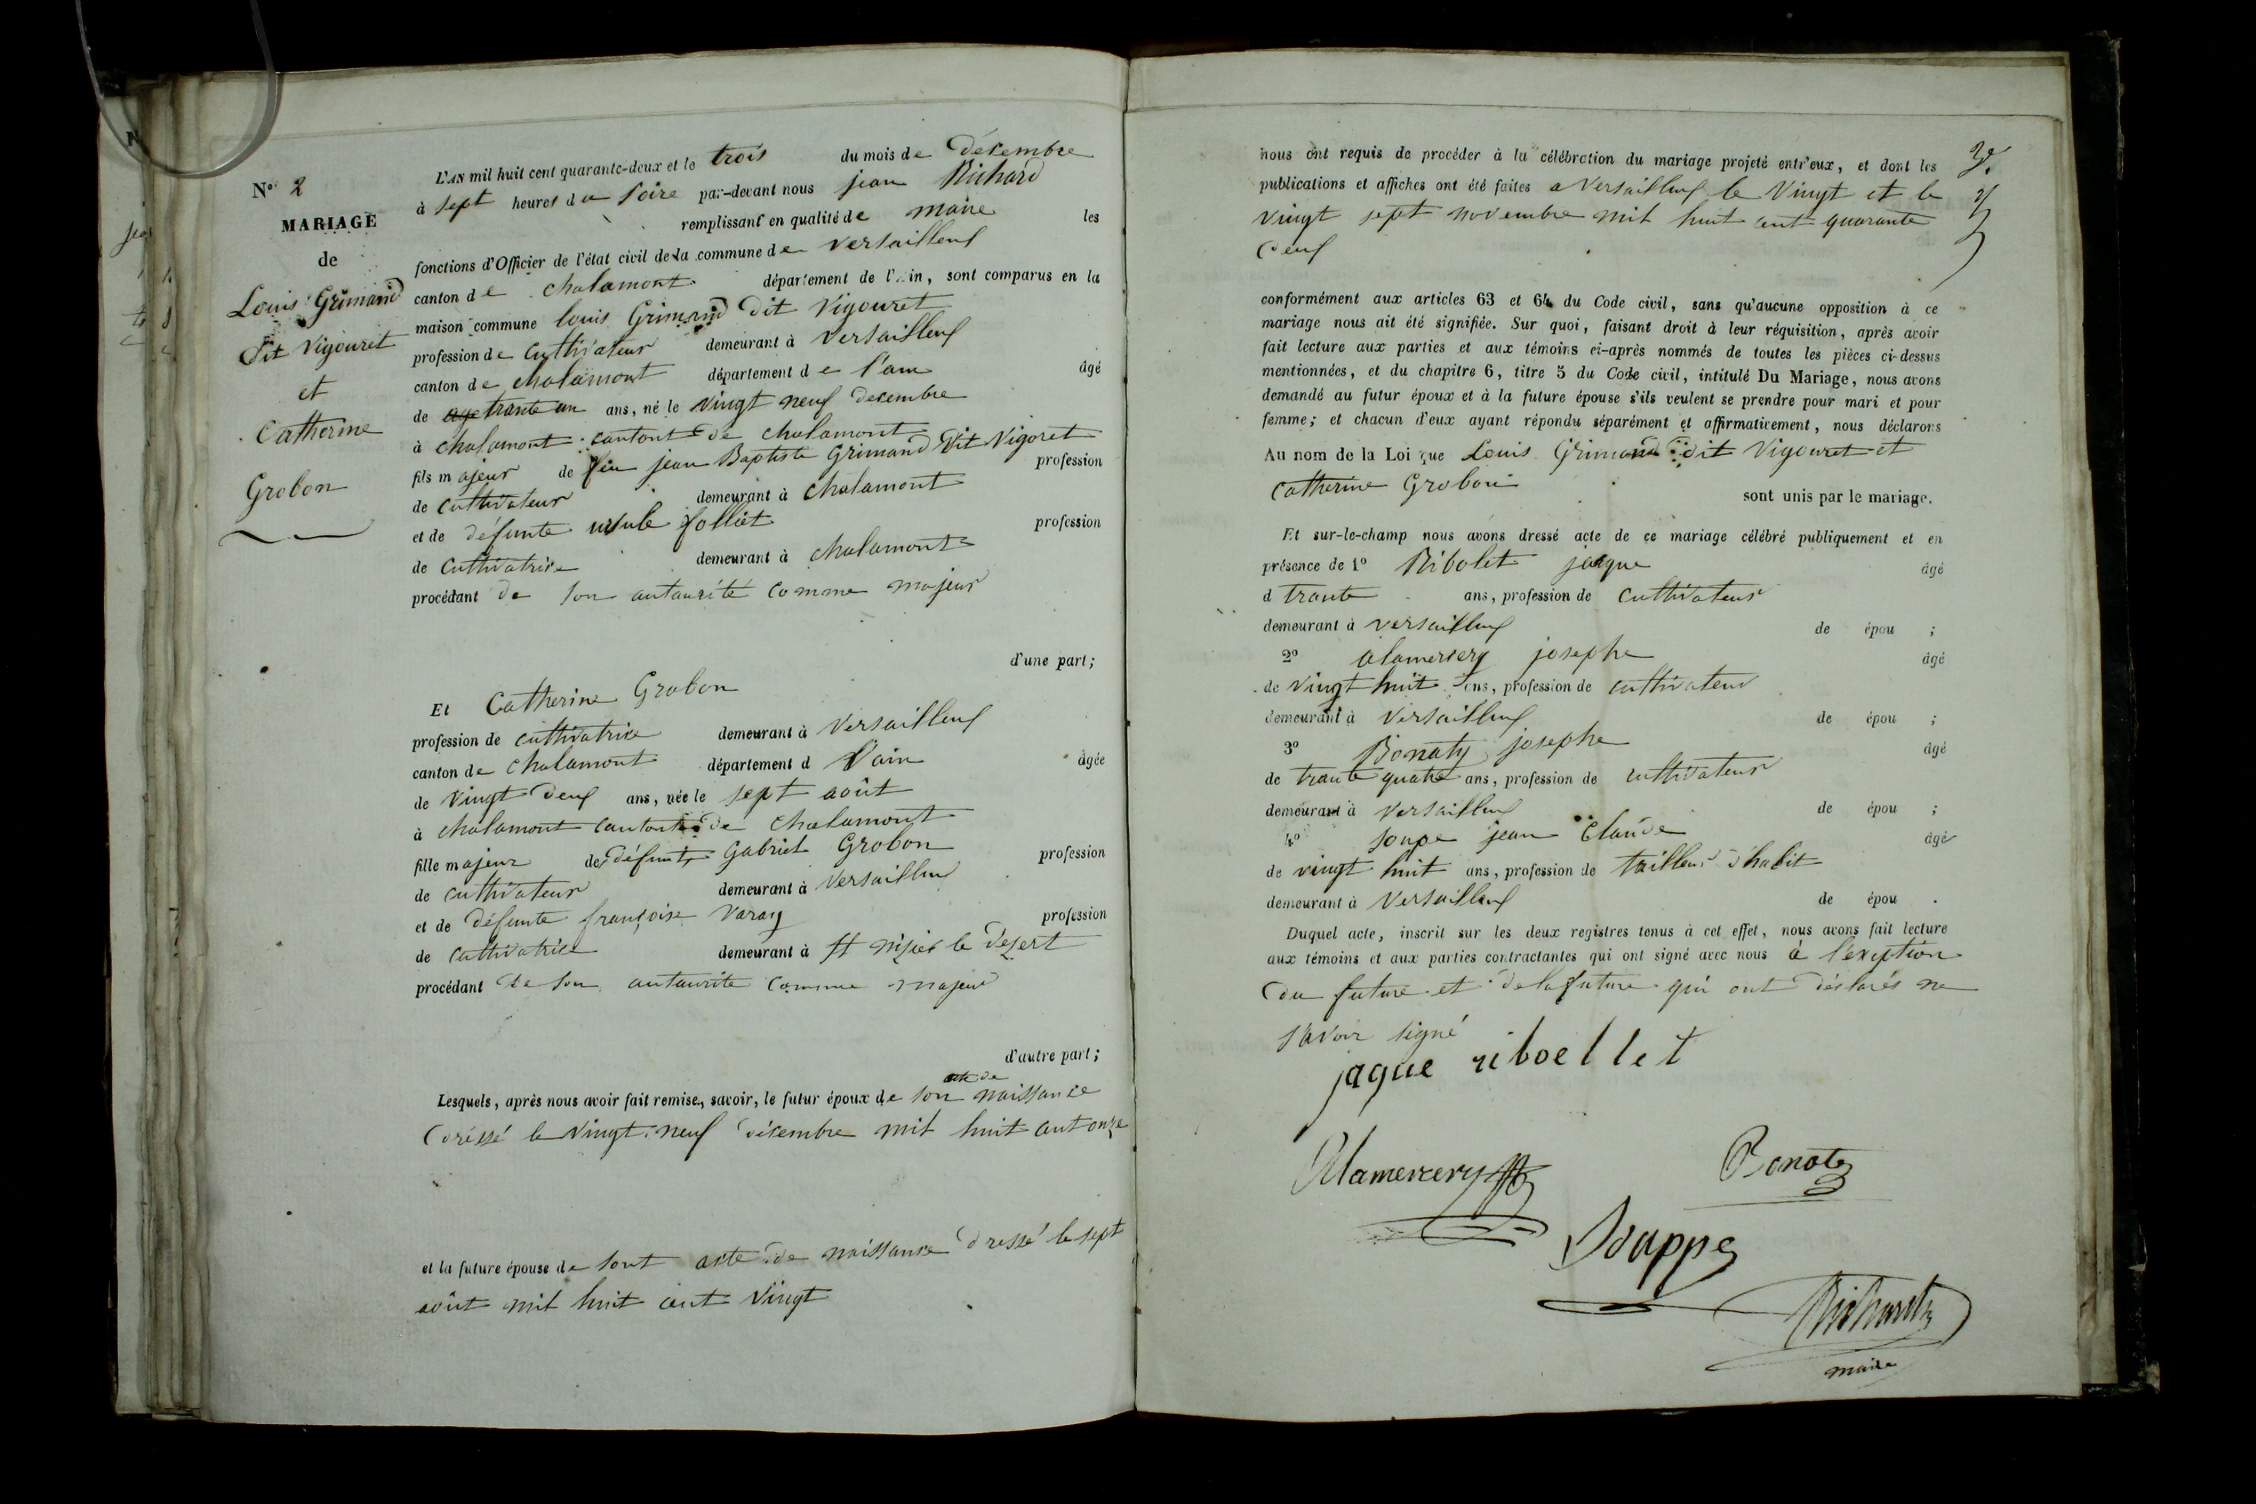 N° 2
MARIAGE
de
Louis Grimand
dit Vigouret
et
Catherine
Grobon
L'AN mil huit cent quarante-deux et le trois du mois de décembre
à sept heures du soire par-devant nous jean Richard
remplissant en qualité de maire les
fonctions d'Officier de l'état civil de la commune de versailleux
canton de chalamont département de l'Ain, sont comparus en la
maison commune louis Grimand dit Vigouret
profession de cultivateur demeurant à Versailleux
canton de chalamont département de l'ain âgé
de trante un ans, né le vingt neuf decembre
à chalamont cantont de chalamont
fils majeur de feu jean Baptiste Grimand dit Vigoret
profession
de cultivateur demeurant à chalamont
et de défunte ursule folliet profession
de cultivatrice demeurant à chalamont
procédant de son autaurité comme majeur
d'une part;
Et Catherine Grobon
profession de cultivatrice demeurant à Versailleux
canton de chalamont département d l'ain âgée
de vingt deux ans, née le sept août
à chalamont cantont de chalamont
fille majeur de défunt Gabriel Grobon
profession
de cultivateur demeurant à Versailleux
et de défunte françoise Varay profession
de cultivatrice demeurant à st nisier le desert
procédant de son autaurité comme majeur
d'autre part;
acte de
Lesquels, après nous avoir fait remise, savoir, le futur époux de son naissance
dréssé le vingt neuf décembre mil huit cent onze
et la future épouse de sont acte de naissance dressé le sept
août mil huit cent vingt
nous ont requis de procéder à la célébration du mariage projeté entr'eux, et dont les
publications et affiches ont été faites a Versailleux le Vingt et le
vingt sept novembre mil huit cent quarante
deux
conformément aux articles 63 et 64 du Code civil, sans qu'aucune opposition à ce
mariage nous ait été signifiée. Sur quoi, faisant droit à leur réquisition, après avoir
fait lecture aux parties et aux témoins ci-après nommés de toutes les pièces ci-dessus
mentionnées, et du chapitre 6, titre 5 du Code civil, intitulé Du Mariage, nous avons
demandé au futur époux et à la future épouse s'ils veulent se prendre pour mari et pour
femme; et chacun d'eux ayant répondu séparément et affirmativement, nous déclarons
Au nom de la Loi que Louis Grimand dit Vigouret et
catherine Grobon
sont unis par le mariage.
Et sur-le-champ nous avons dressé acte de ce mariage célébré publiquement et en
présence de 1° Ribolet jaque âgé
d trante ans, profession de cultivateur
demeurant à versailleux de épou ;
2° alamersery josephe âgé
de vingt huit ans, profession de cultivateur
demeurant à Versailleux de épou ;
3° Bonaty josephe âgé
de trante quatre ans, profession de cultivateur
demeurant à Versailleux de épou ;
4° soupe jean Claude âgé
de vingt huit ans, profession de tailleur d'habit
demeurant à Versailleux de épou .
Duquel acte, inscrit sur les deux registres tenus à cet effet, nous avons fait lecture
aux témoins et aux parties contractantes qui ont signé avec nous à l'exeption
du future et de la future qui ont déclarés ne
savoir signé
jaque riboellet
Alamercery
Bonaty
Souppe
Richard
maire